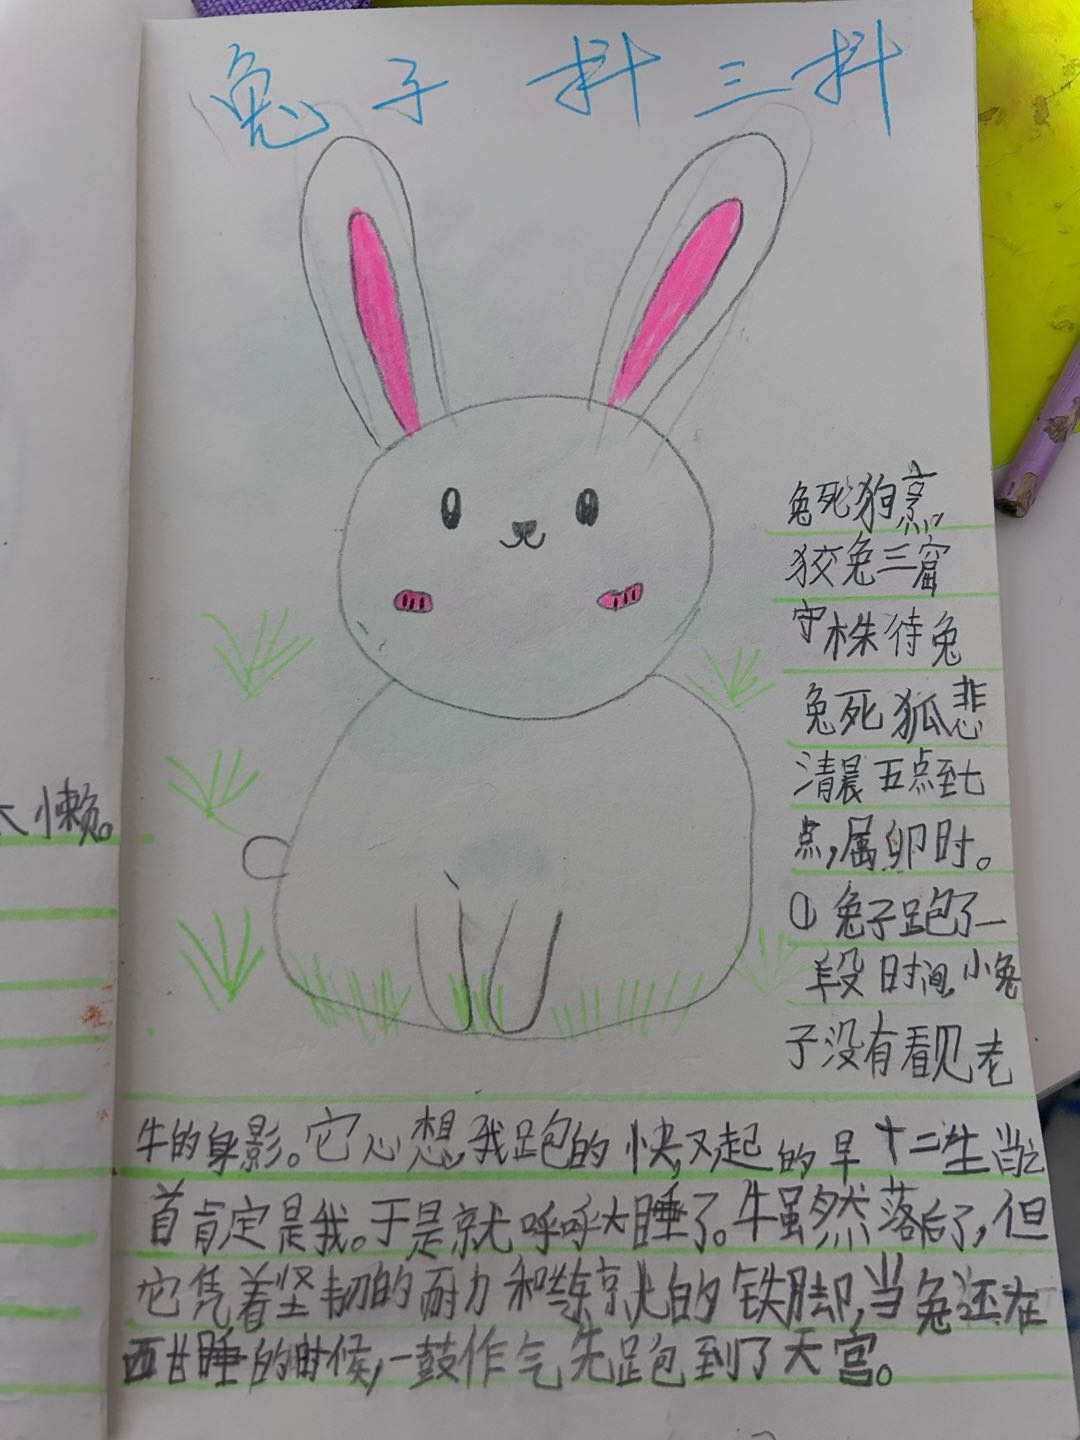 兔子抖三抖
兔死狗烹
狡兔三窟
守株待兔
兔死狐悲
清晨五点至七
点,属卯时。
① 兔子跑了一
段时间,小兔
子没有看见老
牛的身影。它心想我跑的快,又起的早十二生肖之
首肯定是我。于是就呼呼大睡了。牛虽然落后了,但
它凭着坚韧的耐力和练就的铁脚,当兔还在
酣睡的时候,一鼓作气先跑到了天宫。
懒。